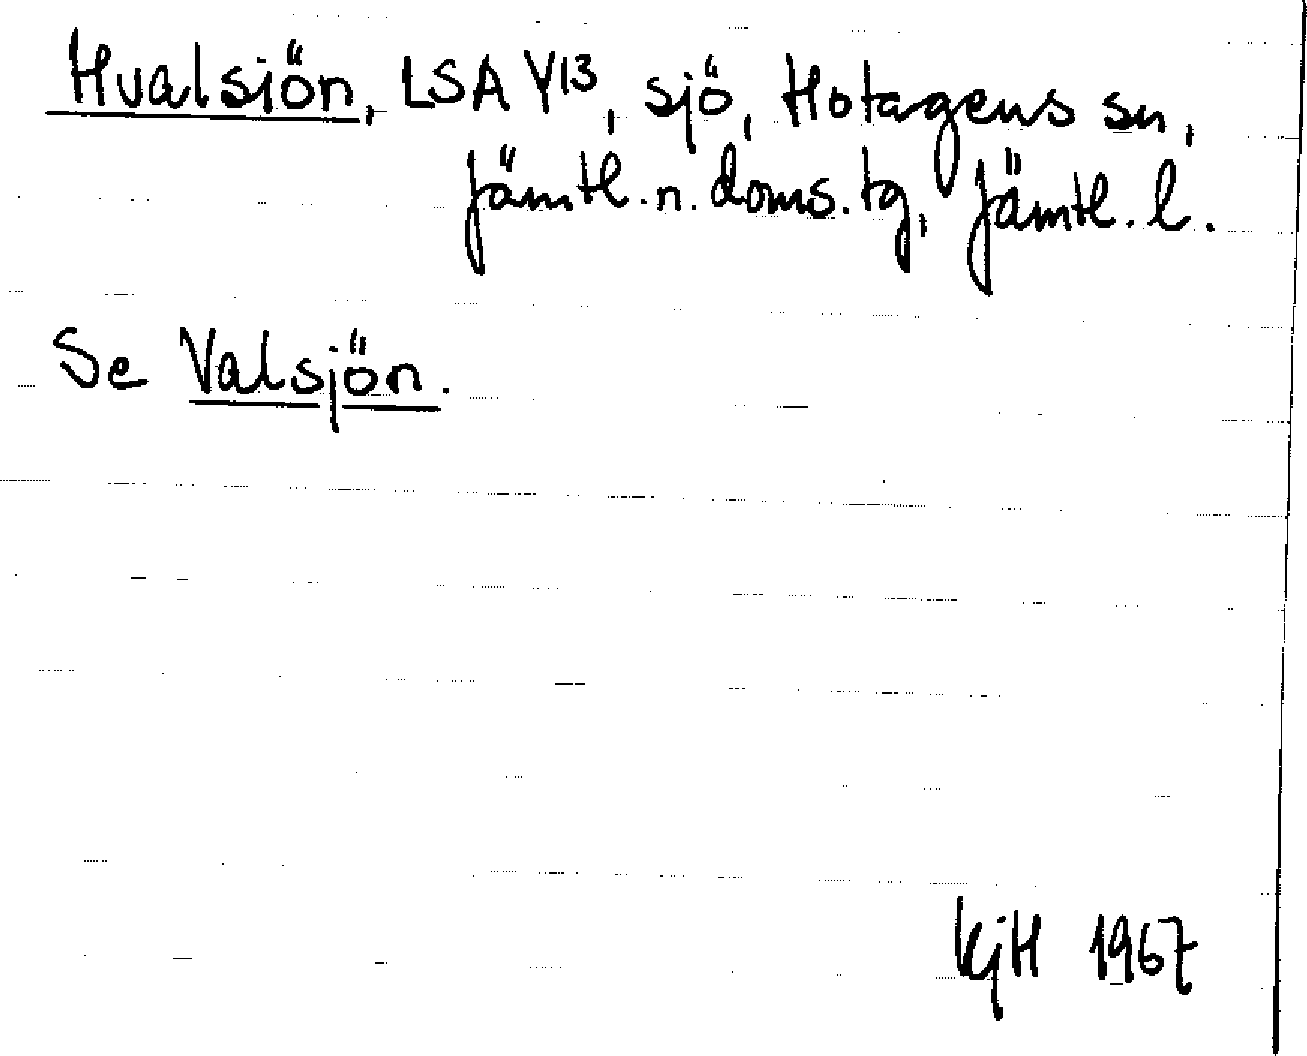 Hvalsiön, LSA Y13, sjö, Hotagens sn,
Jämtl. n. doms. tg, Jämtl. l.
Se Valsjön.
KjH 1967